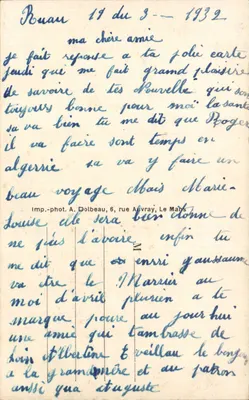 Ruau 19 du 3 - 1932
ma chère amie
je fait reponse a ta jolie carte
jeudi que me fait grand plaisire
de savoire de tes Nouvelle qui son
toujours bonne pour moi la santé
sa va bien tu me dit que Roger
il va faire sont temps en
algerrie sa va y faire un
beau voyage Mais Marie-
Louise ele sera bien étonne de
Imp.-phot. A. Dolbeau, 5, rue Auvray, Le Mans
ne plus l'avoire enfin tu
me dit que enrri gaussaume
va etre le Marrier au
moi d'avril plurien a te
marque poure au jour'hui
une amie qui t'ambrasse de
loin Albertine Eveillau le bonjour
a la grandmère et au patron
aussi qua Auguste